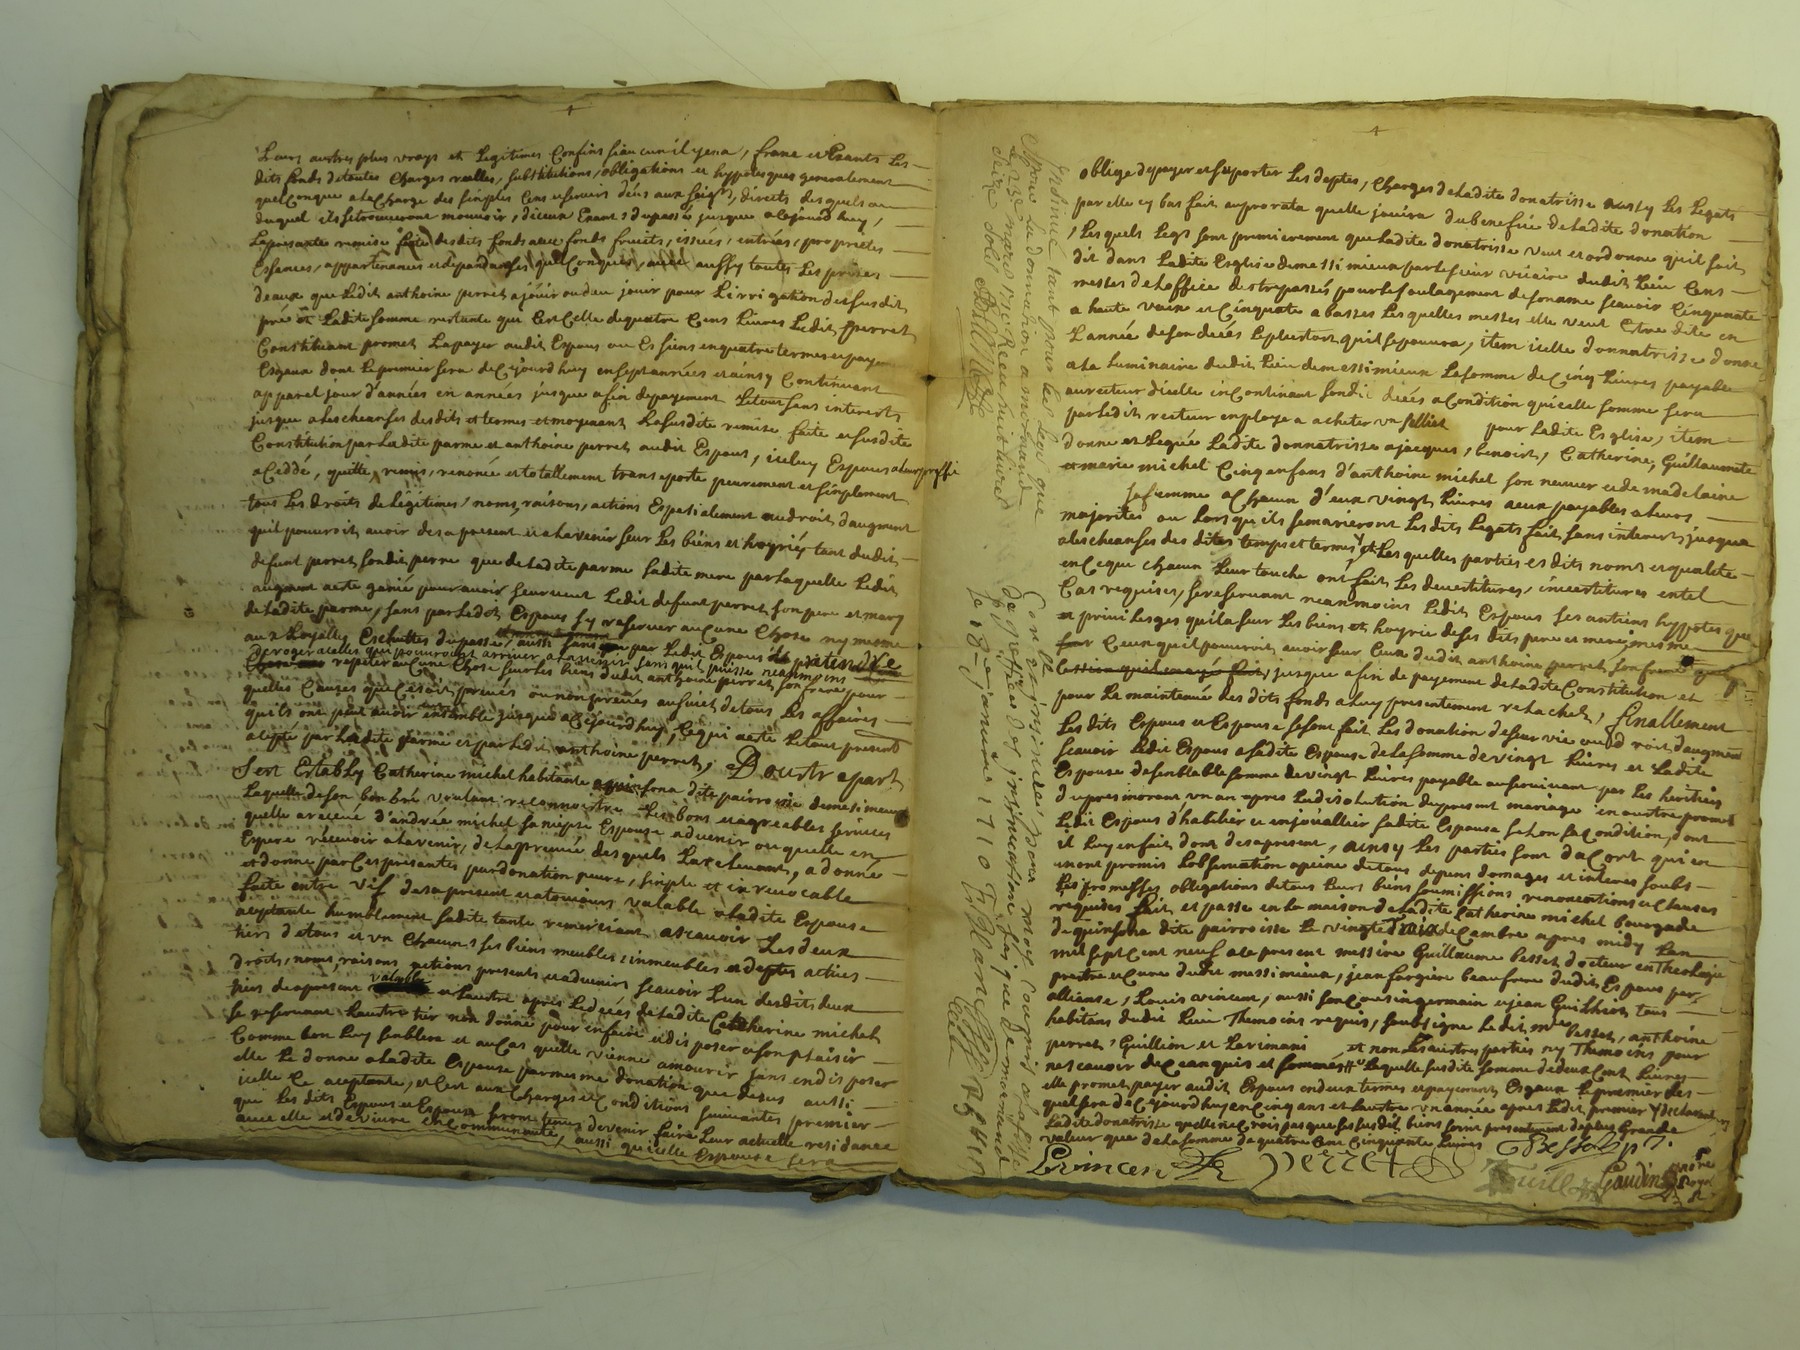 Leurs autres plus vrays et Legitimes Confins si aucun il y en a, franc et Exants Les
dits fonds de toutes Charges reelles, substitutions, obligations et hyppoteques generalement
quelConque a la Charge des simples Cens et servis deus aux seigrs directs desquels ou
duquel ils se trouveront mouvoir, d'iceux Exant du passé jusques a Cejourdhuy,
La presante remise faite desdits fonds avec fonds fruits, issues, entrées, proprietes
Essances, appartenances et dependances quelConques, avec aussy toutes Les prises
deaux que Ledit anthoine perret a jouir ou deu jouir pour Lirrigation desusdit
pré et Ladite somme restante qui Est Celle de quatre Cens Livres Ledit perret
Constituant promet La payer audit Espoux ou Es siens en quatre termes et
Esgaux dont Le premier sera de Cejourdhuy en sept années et ainsy Continuant
a pareil jour d'années en années jusques a fin de payement Le tout sans interets
jusques a Lescheanse desdits et termes et moyenant La susdite remise faite et susdite
Constitution par Ladite parme et anthoine perret audit Espoux, iceluy Espoux
a Ceddé, quitte, remis, renoncé et totallement transporte purement et simplement
tous Les droits de legitimes, noms, raisons, actions Espesialement au droit d'augment
quil pouvoit avoir des a present et a Lavenir sur Les biens et hoyries tant dudit
defunt perret sondit perre que de Ladite parme sadite mere par Laquelle Ledit
augment aeste gaigné pour avoir survecut Ledit defunt perret son pere et mary
de Ladite parme, sans par Ledit Espoux sy reserver aucune Chose ny mesme
aux Loyalles Escheuttes du passé, aussi sans par Ledit Espoux pretendre
deroger a icelles qui pourroient arriver a Lavenir, sans quil puisse neanmoins
repeter aucune Chose sur Les biens dudit anthoine perret son frere pour
quelles Causes que Ce soit, preveues ou non preveues au sujet de tous Les affaires
quils ont peut avoir ensemble jusques a Cejourdhuy, Ce qui aeste Le tout present
acepté par Ladite parme et par Ledit anthoine perret, D'oultre part
sest Establÿ Catherine michel habitante a quinsona dite parroisse de messimeux
Laquelle de son bon Gré voulant reconnoistre Les bons et agreables services
quelle a receue d'andrée michel sa niepse Espouse advenir ou quelle en
Espere recevoir a Lavenir, de La preuve desquels La relevant, a donné
et donne par Ces presantes par donation pure, simple et irrevocable
faite entre vif des a present et a tousiours valable a Ladite Espouse
aceptante humblement sadite tante remerciant ascavoir Les deux
tiers de tous et un Chacuns ses biens meubles, inmeubles et deptes actives
droits, noms, raisons, actions presents et advenirs scavoir L'un desdits deux
tiers des a present valable et Lautre apres Le decés de Ladite Catherine michel
se reservant Lautre tier non donné pour en faire et disposer a son plaisir
Comme bon Luy semblera et au Cas quelle vienne a mourir sans en disposer
elle Le donne a Ladite Espouse par mesme donation que desus aussi
icelle Ce aceptante, et C'est aux Charges et Conditions suivantes premier
que Les dits Espoux et Espouse seront tenus de venir faire Leur actuelle residance
avec elle et de vivre en Communauté, aussi qu'icelle Espouse sera
oblige de payer et suporter Les deptes, Charges de Ladite donatrisse et aussy Les Legats
par elle cy bas fait au prorata quelle jouira du benefice de Ladite donation
, Lesquels Legs sont premierement que Ladite donatrisse veut et ordonne quil soit
dit dans Ladite Esglise de messimieux par Le sieur vicaire dudit Lieu Cens
messes de Loffice des trepassés pour Le soulagement de son ame scavoir Cinquante
a haute voix et Cinquante a basses Lesquelles messes elle veut Estre dite en
L'année de son decés Le plustost quil se pourra, item icelle donnatrisse donne
a La Luminaire dudit Lieu de messimieux La somme de Cinq Livres payable
au recteur d'icelle incontinant sondit decés a Condition qu'icelle somme sera
par Ledit recteur employe a acheter un pour Ladite Esglise, item
donne et Legue Ladite donnatrisse a jacques, benoist, Catherine, Guillaumette
et marie michel Cinq enfans d'anthoine michel son neveu et de madelaine
sa femme a Chacun d'eux vingt Livres a eux payables a Leurs
majorités ou Lorsqu'ils se marieront Les dits Legats fait, sans interets jusqua
a Lescheanses desdites temps et termes, et Lesquelles parties esdits noms et qualite
en Ce que Chacun Leur touche ont fait Les devestitures, investitures en tel
Cas requises, se reservant neanmoins Ledit Espoux ses antiens hyppoteques
et privileges quil a sur Les biens et hoyrie de ses dits pere et mere, mesme
Ceux quil pouvoit avoir sur Ceux dudit anthoine perret son frere
jusques a fin de payement de Ladite Constitution et
pour Le maintenue des dits fonds a Luy presentement relachés, finallement
Les dits Espoux et Espouse se sont fait Les donation de survie ou droit d'augment
scavoir Ledit Espoux a Ladite Espouse de La somme de vingt Livres et Ladite
Espouse de semblable somme de vingt Livres payable au survivant par Les heritiers
du premorant un an apres La disolution du present mariage en outre promet
Ledit Espoux d'habiller et enjoualler sadite Espouse selon sa Condition, dont
il Luy en fait dont des a present, ainsy Les parties sont d'acort qui en
en ont promis Lobservation a peine de tous depens domages et interes soubs
Les promesses obligations de tous Leurs biens soumissions renonciations et Clauses
requises fait et passé en La maison de Ladite Catherine michel bourgade
de quinsona dite parroisse Le vingt de Cambre apres midy Lan
mil sept Cent neuf a Ce present messire Guillaume besset docteur en Theologie
prestre et Curé dudit messimieux, jean forgiere beaufrere dudit Espoux par
alliance, Louis vincent, aussi son Cousin germain et jean Guillion tous
habitans dudit Lieu Themoins requis, soubsigné Ledit mre besset, anthoine
perret, Guillion et et non Les autres parties ny Themoins pour
ne scavoir de Ce enquis et sommés Laquelle susdite somme de deux Cent Livres
elle promet payer audit Espoux en deux termes et payements Esgaux Le premier des
quels sera de Cejourdhuy en Cinq ans et Lautre un année apres Ledit premier declarant
Ladite donatrisse quelle ne Crois pas que sesusdit biens soient presentement de plus Grande
valeur que de La somme de quatre Cent Cinquante Livres Besset ptre
perret
Gaudin nore royal
Insinué tant pour les legs que
pour la donation a
le 23e mars 1710 Receu huit livres
seize sols
Con.lle et insinué pour mot compris le
de greffier des insinuations laiques de
le 18e janvier 1710